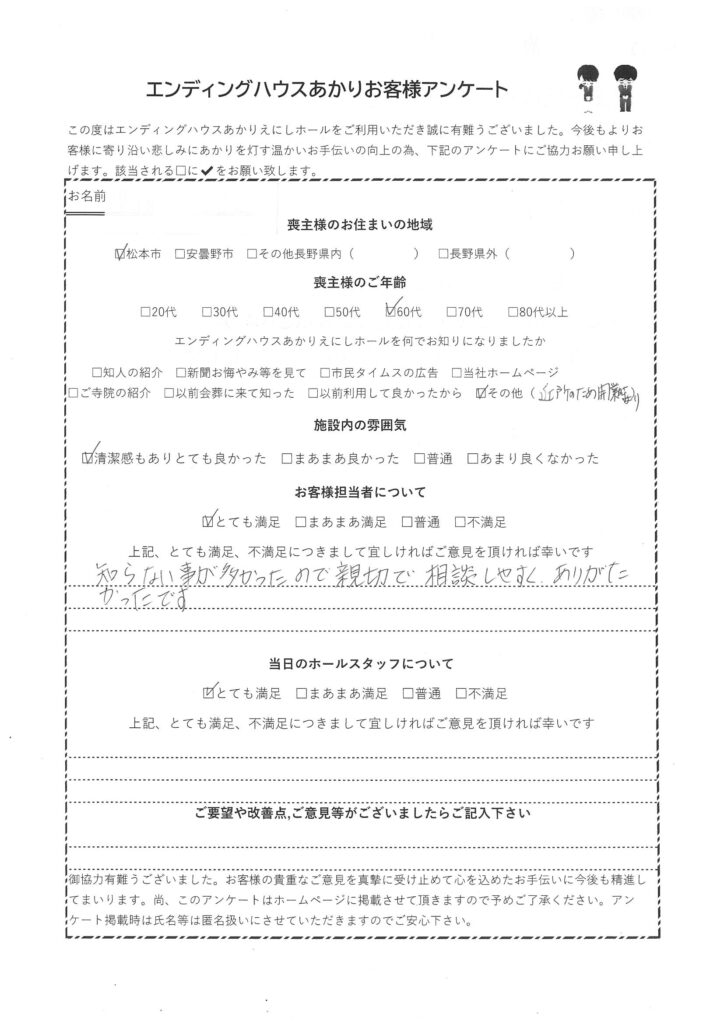 エンディングハウスあかりお客様アンケート
この度はエンディングハウスあかりえにしホールをご利用いただき誠に有難うございました。今後もよりお
客様に寄り沿い悲しみにあかりを灯す温かいお手伝いの向上の為、下記のアンケートにご協力お願い申し上
げます。該当される□に✔をお願い致します。
お名前
喪主様のお住まいの地域
☑松本市 □安曇野市 □その他長野県内（ ） □長野県外（ ）
喪主様のご年齢
□20代 □30代 □40代 □50代 ☑60代 □70代 □80代以上
エンディングハウスあかりえにしホールを何でお知りになりましたか
□知人の紹介 □新聞お悔やみ等を見て □市民タイムスの広告 □当社ホームページ
□ご寺院の紹介 □以前会葬に来て知った □以前利用して良かったから ☑その他（近所のため
施設内の雰囲気
☑清潔感もありとても良かった □まあまあ良かった □普通 □あまり良くなかった
お客様担当者について
☑とても満足 □まあまあ満足 □普通 □不満足
上記、とても満足、不満足につきまして宜しければご意見を頂ければ幸いです
知らない事が多かったので親切で相談しやすく、ありがた
かったです
当日のホールスタッフについて
☑とても満足 □まあまあ満足 □普通 □不満足
上記、とても満足、不満足につきまして宜しければご意見を頂ければ幸いです
ご要望や改善点,ご意見等がございましたらご記入下さい
御協力有難うございました。お客様の貴重なご意見を真摯に受け止めて心を込めたお手伝いに今後も精進し
てまいります。尚、このアンケートはホームページに掲載させて頂きますので予めご了承ください。アン
ケート掲載時は氏名等は匿名扱いにさせていただきますのでご安心下さい。